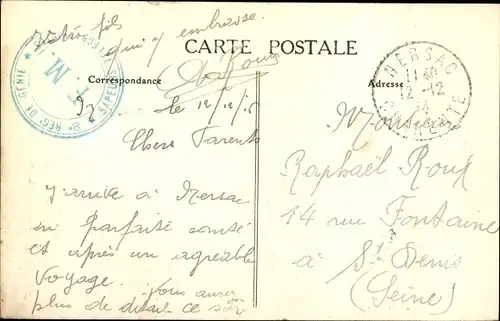 Votre fils
qui v embrasse.
CARTE POSTALE
Correspondance
Adresse
8e REG. DE GÉNIE ★ SAPEURS
T.M.
NERSAC
11 40
12 -12
14
CHARENTE
le 12/12/
Chers Parents
J'arrive à Nersac
en parfaite santé
et après un agréable
voyage. Vous aurez
plus de détails ce soir
Monsieur
Raphaël Roux
14 rue Fontaine
à St Denis
(Seine)